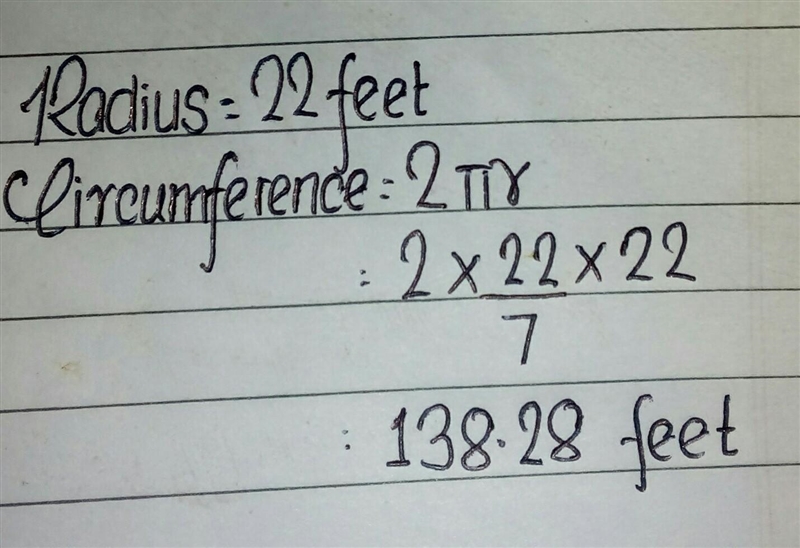 Radius = 22 feet
Circumference = 2πr
= 2 × 22/7 × 22
= 138.28 feet